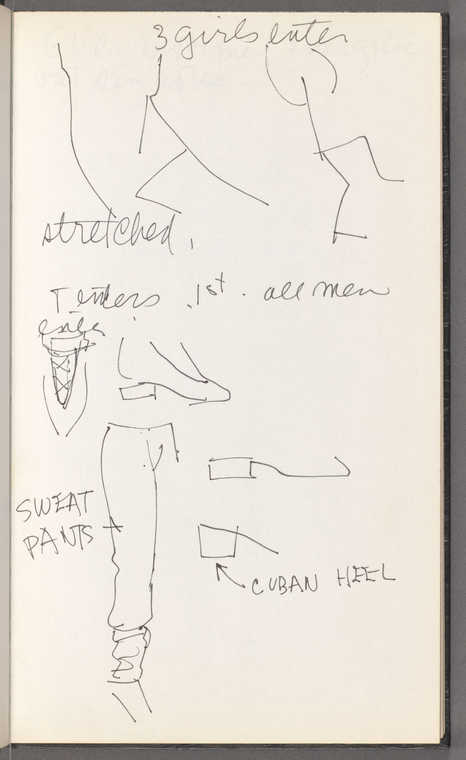 3 girls enter
stretched,
T enters 1st. all men
SWEAT
PANTS
CUBAN HEEL